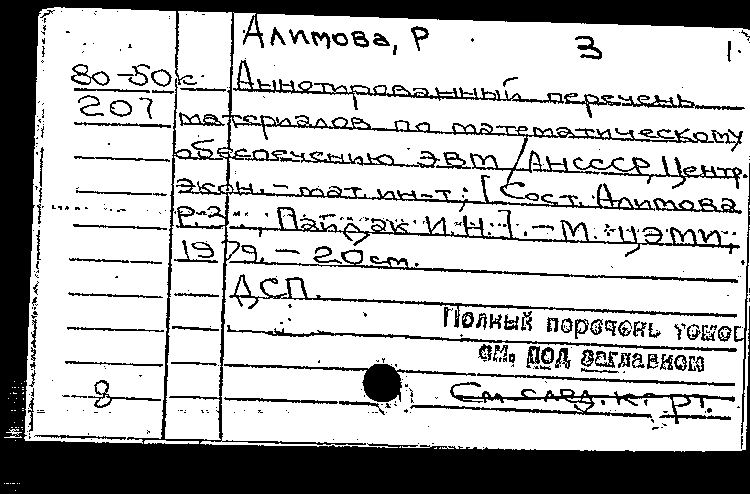 Алимова, Р 3 1.
80-50к Аннотированный перечень
207 материалов по математическому
обеспечению ЭВМ / АНСССР, Центр.
экон.-мат. ин-т; [Сост. Алимова
Р.З., Пайдак И.Н.]. - М.: ЦЭМИ,
1979. - 20см.
ДСП.
Полный перечень томов
см. под заглавием
8 См след. к рт.